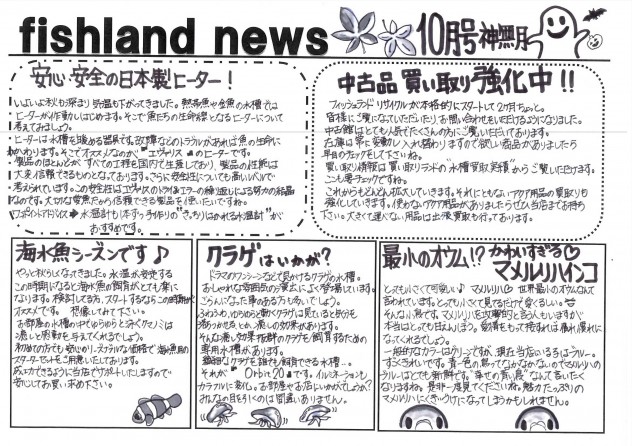 fishland news 10月号 神無月
安心・安全の日本製ヒーター！
いよいよ秋も深まり気温も下がってきました。熱帯魚や金魚の水槽では
ヒーターが作動しはじめます。そこで魚たちの生命線となるヒーターについて
考えてみましょう。
ヒーターは水槽を暖める器具です。故障などのトラブルがあれば魚の生命に
かかわります。そこでオススメなのが"エヴァリス"のヒーターです。
製品のほとんどが すべての工程を国内で生産しており 製品の性能は
大変信頼できるものとなております。さらに安全性についても高いレベルで
考えられています。この安全性は
努力の結晶
なのです。大切な愛魚だから信頼できる製品を使いたいですね。
水温計も1本ずつ手作りの"きっちりはかれる水温計"が
おすすめです。
中古品 買い取り 強化中!!
フィッシュランド リサイクルが本格的にスタートして2か月ちょっと。
皆様にご覧になっていただいたりお問い合わせをいただけるようになりました。
中古館はとても人気でたくさんの方にご覧いただいております。
在庫は常に変動し入れ替わりますので欲しい商品がありましたら
早目のチェックをして下さいね。
買い取り情報は買い取りランドの"水槽買取実績"からご覧いただけます。
こっちも要チェックですね。
これからもどんどん拡大していきます。それにともないアクア用品の買取りも
強化しています。使わないアクア用品がありましたらぜひ当店までお持ち
下さい。大きくて運べない用品は出張買取も行っております。
海水魚シーズンです♪
やっと秋らしくなってきました。水温が安定する
この時期になると海水魚の飼育がとても楽に
なります。検討してる方、スタートするならこの時期が
オススメです。 想像してみて下さい。
お部屋の水槽の中でゆらゆらと泳ぐクマノミは
癒しと感動を与えてくれるでしょう。
初めての方でも安心の、リーズナブルな価格で海水魚の
スターターセットもご用意いたしております。
成功できるように当店でサポートしますので
安心してお買い求め下さい。
クラゲはいかが？
ドラマのワンシーンなどで見かけるクラゲの水槽。
おしゃれな雰囲気の演出によく登場しています。
ごらんになった事のある方も多いでしょう。
ふわふわ、ゆらゆらと動くクラゲは見ていると我々を
落ちつかせるとか、癒しの効果があります。
そんな癒し効果抜群のクラゲを飼育するための
専用水槽があります。
クラゲを誰でも飼育できる水槽…。
それが"Orbit20"です。イルミネーションも
カラフルに彩る。お部屋やお店にいかがでしょうか？
みんなの目を引くのは間違いありません。
最小のオウム!? かわいすぎる♡
マメルリハインコ
とっても小さくて可愛い♪マメルリハ♡世界最小のオウムなんて
言われています。とっても小さくて見てるだけで愛くるしい。
そんな鳥です。マメルリハを攻撃的と言う人もいますが
本当はとっても甘えんぼう。愛情をもって接すれば慣れ慣れに
なってくれるでしょう。
一般的なカラーはグリーンですが、現在当店にいる子はブルー。
すっごくきれいです。青い色の鳥ってなかなかないのでマメルリハの
ブルーはとても新鮮です。"幸せの青い鳥"なんて言いたく
なりますね。是非一度見てくださいね。魅力たっぷりの
マメルリハにくぎづけになってしまうかもしれません。